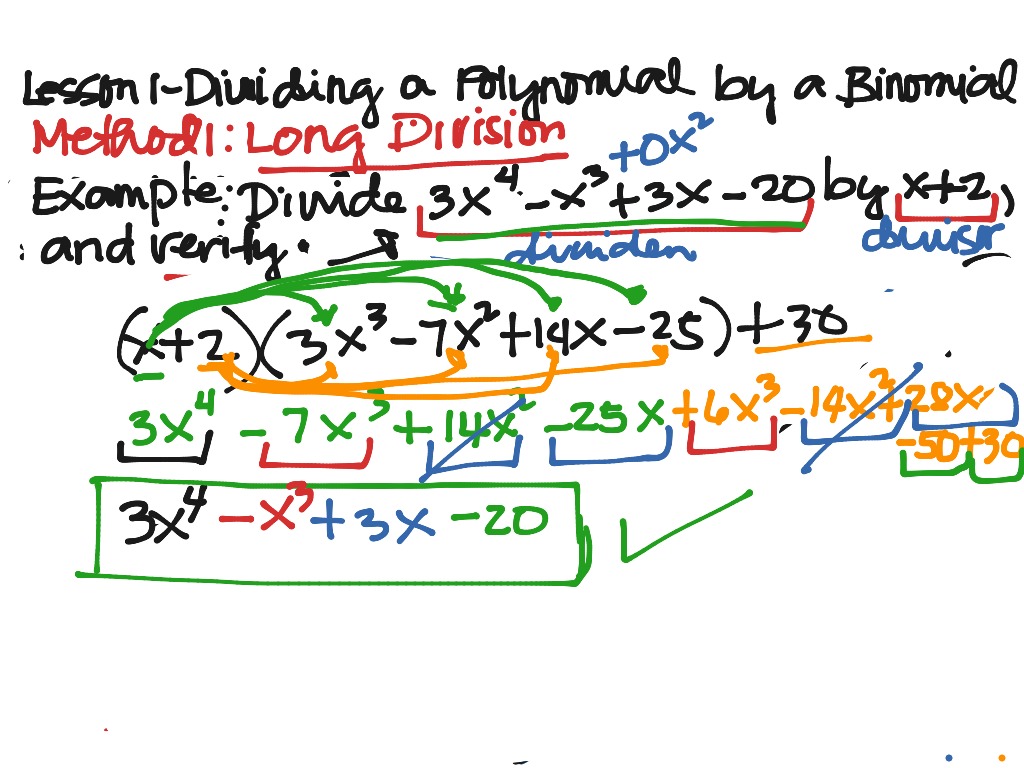 Lesson 1-Dividing a Polynomial by a Binomial
Method 1: Long Division
+0x²
Example: Divide 3x⁴ - x³ + 3x - 20 by x+2,
and verify. dividen divisor
(x+2)(3x³ - 7x² + 14x - 25) + 30
3x⁴ - 7x³ + 14x² - 25x + 6x³ - 14x² + 28x
-50+30
3x⁴ - x³ + 3x - 20